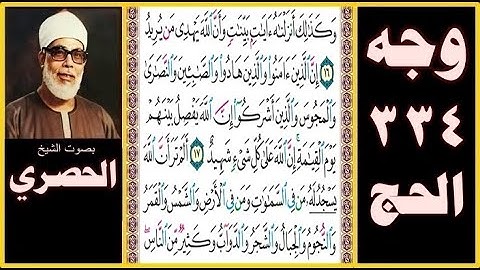 وجه
٣٣٤
الحج
وَكَذَٰلِكَ أَنزَلْنَٰهُ ءَايَٰتٍۭ بَيِّنَٰتٍ وَأَنَّ ٱللَّهَ يَهْدِى مَن يُرِيدُ
١٦ إِنَّ ٱلَّذِينَ ءَامَنُوا۟ وَٱلَّذِينَ هَادُوا۟ وَٱلصَّٰبِـِٔينَ وَٱلنَّصَٰرَىٰ
وَٱلْمَجُوسَ وَٱلَّذِينَ أَشْرَكُوٓا۟ إِنَّ ٱللَّهَ يَفْصِلُ بَيْنَهُمْ
يَوْمَ ٱلْقِيَٰمَةِ إِنَّ ٱللَّهَ عَلَىٰ كُلِّ شَىْءٍ شَهِيدٌ ١٧ أَلَمْ تَرَ أَنَّ ٱللَّهَ
يَسْجُدُ لَهُۥ مَن فِى ٱلسَّمَٰوَٰتِ وَمَن فِى ٱلْأَرْضِ وَٱلشَّمْسُ وَٱلْقَمَرُ
وَٱلنُّجُومُ وَٱلْجِبَالُ وَٱلشَّجَرُ وَٱلدَّوَآبُّ وَكَثِيرٌ مِّنَ ٱلنَّاسِ
بصوت الشيخ
الحصري